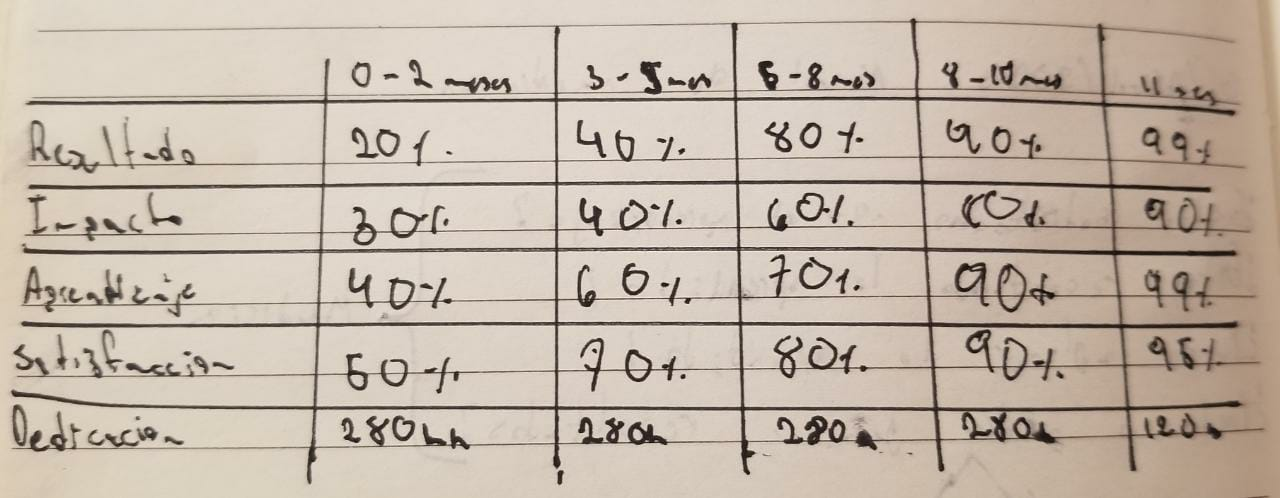 0-2 meses 3-5 mes 6-8 mes 8-10 mes 11 mes
Resultado 20% 40% 80% 90% 99%
Impacto 30% 40% 60% 80% 90%
Aprendizaje 40% 60% 70% 90% 99%
Satisfaccion 60% 70% 80% 90% 95%
Dedicacion 280h 280h 280h 280h 120h